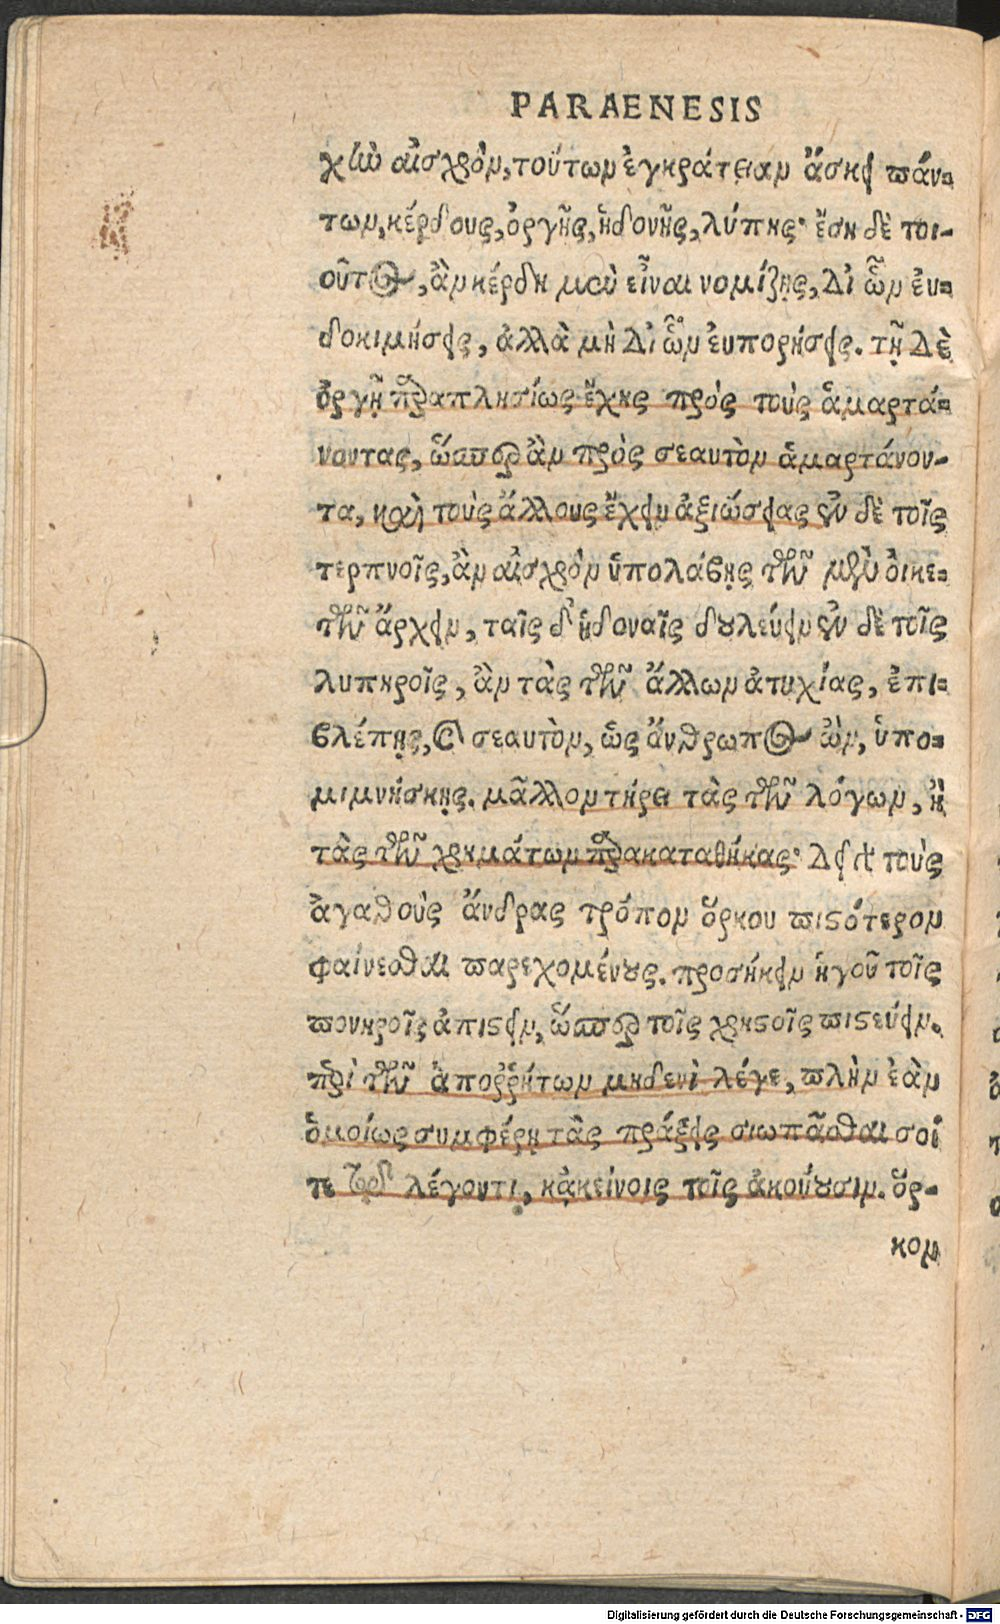 PARAENESIS
χὴν αἰσχρὸν, τούτων ἐγκράτειαν ἄσκει πάν-
των, κέρδους, ὀργῆς, ἡδονῆς, λύπης· ἔσῃ δὲ τοι-
οῦτος, ἂν κέρδη μὲν εἶναι νομίζῃς, δι' ὧν ἐυ-
δοκιμήσεις, ἀλλὰ μὴ δι' ὧν ἐυπορήσεις. τῇ δὲ
ὀργῇ παραπλησίως ἔχῃς πρὸς τοὺς ἁμαρτά-
νοντας, ὥσπερ ἂν πρὸς σεαυτὸν ἁμαρτάνον-
τα, καὶ τοὺς ἄλλους ἔχειν ἀξιώσειας ἐν δὲ τοῖς
τερπνοῖς, ἂν αἰσχρὸν ὑπολάβῃς τῶν μὲν ὀικε-
τῶν ἄρχειν, ταῖς δ' ἡδοναῖς δουλεύειν ἐν δὲ τοῖς
λυπηροῖς, ἂν τὰς τῶν ἄλλων ἀτυχίας, ἐπι-
βλέπῃς, καὶ σεαυτὸν, ὡς ἄνθρωπος ὢν, ὑπο-
μιμνήσκῃς. μᾶλλον τήρει τὰς τῶν λόγων, ἢ
τὰς τῶν χρημάτων παρακαταθήκας· δεῖ γὰρ τοὺς
ἀγαθοὺς ἄνδρας τρόπον ὅρκου πιστότερον
φαίνεσθαι παρεχομένους. προσήκειν ἡγοῦ τοῖς
πονηροῖς ἀπιστεῖν, ὥσπερ τοῖς χρηστοῖς πιστεύειν.
περὶ τῶν ἀποῤῥήτων μηδενὶ λέγε, πλὴν ἐὰν
ὁμοίως συμφέρῃ τὰς πράξεις σιωπᾶσθαι σοί
τε τῷ λέγοντι, κἀκείνοις τοῖς ἀκούουσιν. ὅρ-
κον
Digitalisierung gefördert durch die Deutsche Forschungsgemeinschaft - DFG